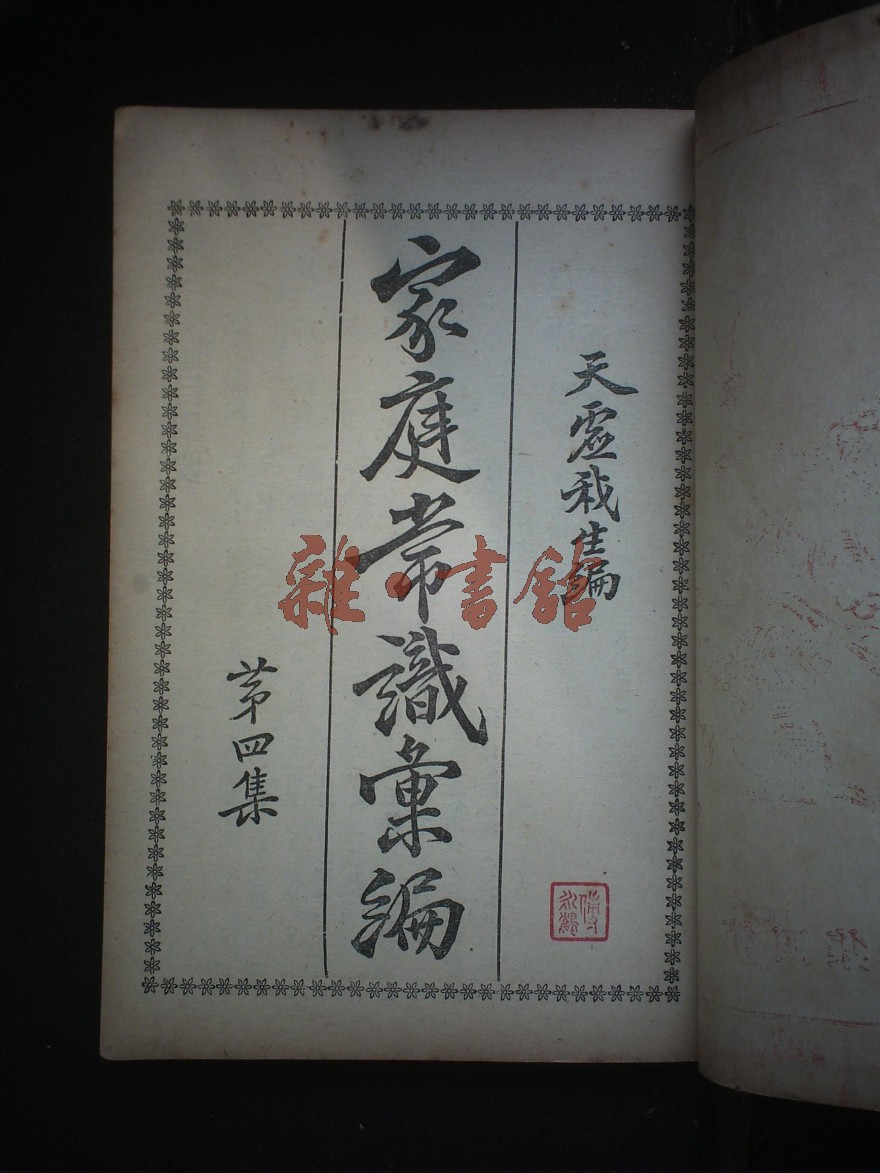 天虛我生編
家庭常識彙編
第四集
雜書館